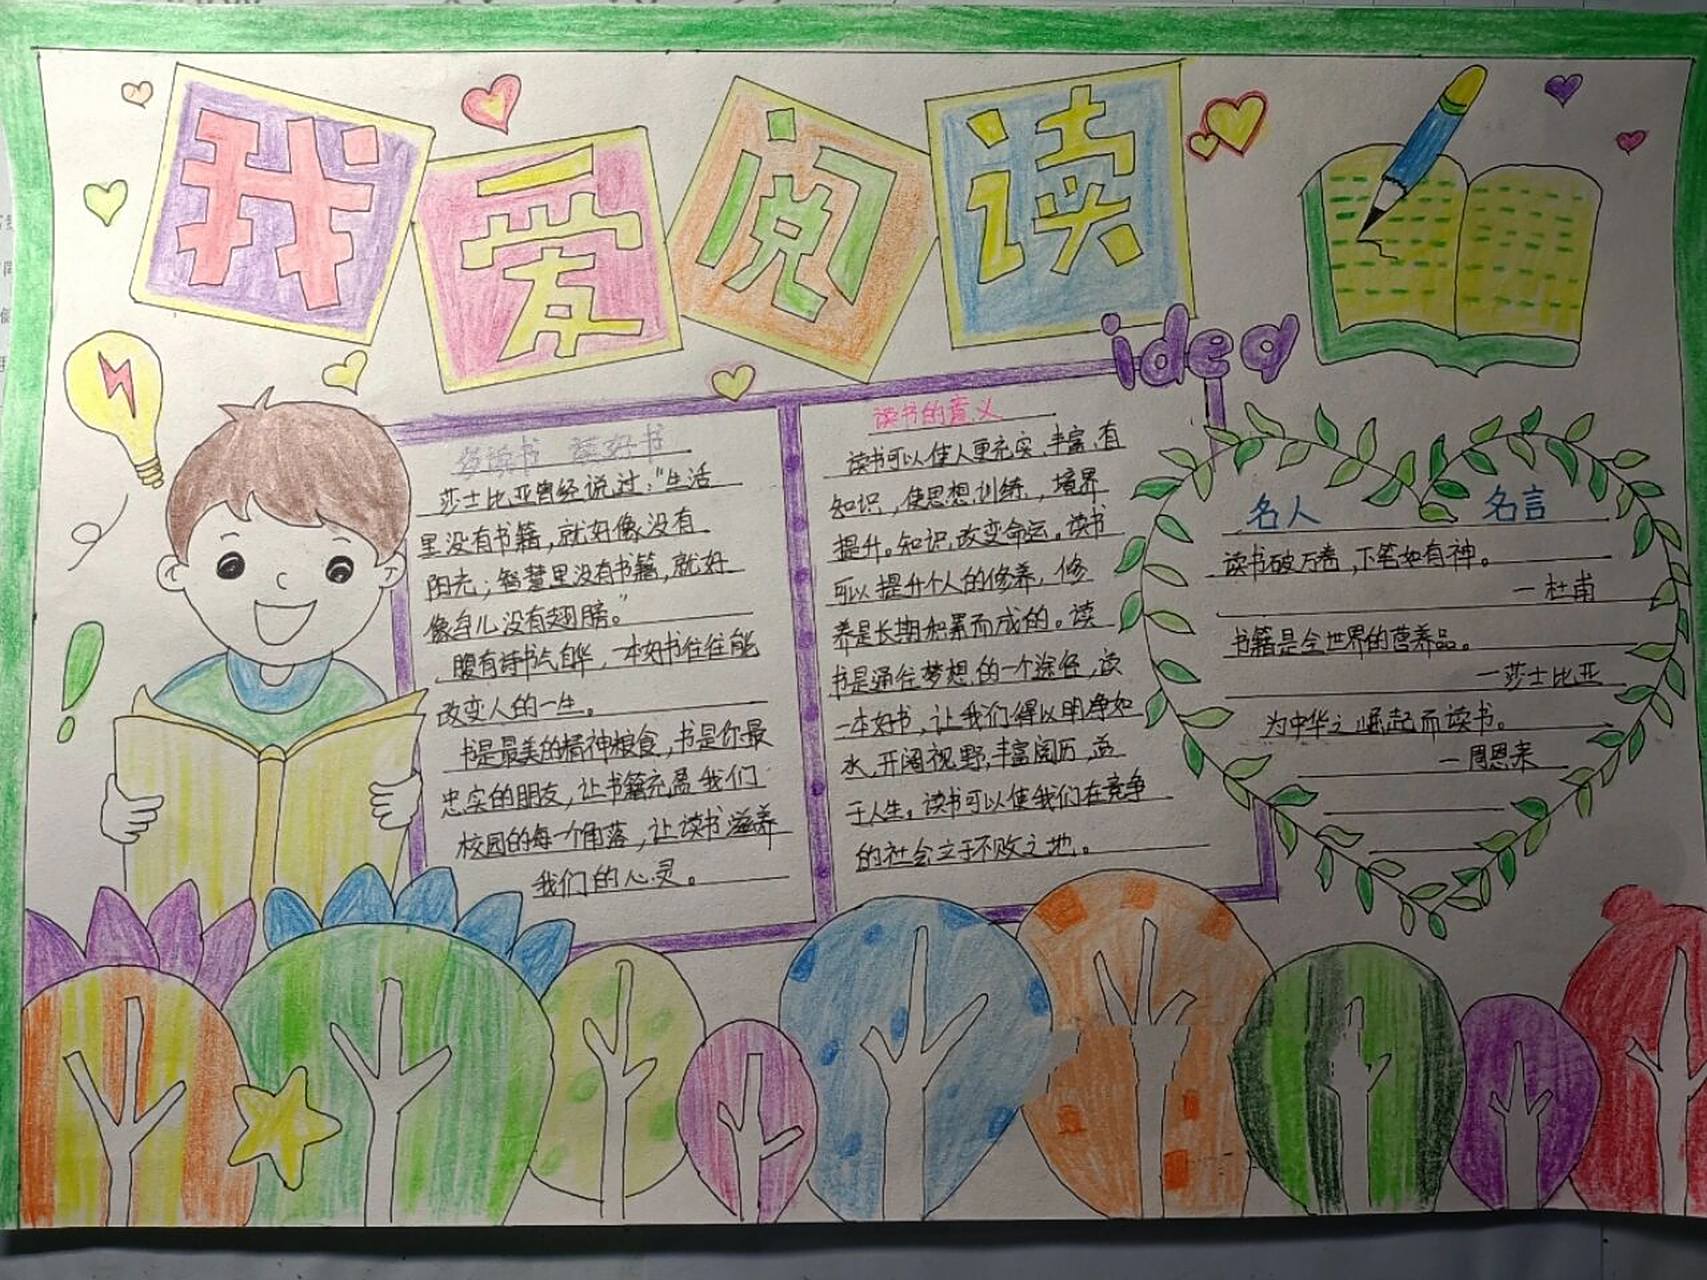 我爱阅读
idea
多读书 读好书
莎士比亚曾经说过:“生活
里没有书籍,就好像没有
阳光;智慧里没有书籍,就好
像鸟儿没有翅膀。”
腹有诗书气自华,一本好书往往能
改变人的一生。
书是最美的精神粮食,书是你最
忠实的朋友,让书籍充盈我们
校园的每一个角落,让读书滋养
我们的心灵。
读书的意义
读书可以使人更充实、丰富、有
知识,使思想训练,境界
提升。知识改变命运。读书
可以提升个人的修养,修
养是长期积累而成的。读
书是通往梦想的一个途径,读
一本好书,让我们得以明净如
水,开阔视野,丰富阅历,益
于人生。读书可以使我们在竞争
的社会立于不败之地。
名人 名言
读书破万卷,下笔如有神。
—杜甫
书籍是全世界的营养品。
—莎士比亚
为中华之崛起而读书。
—周恩来